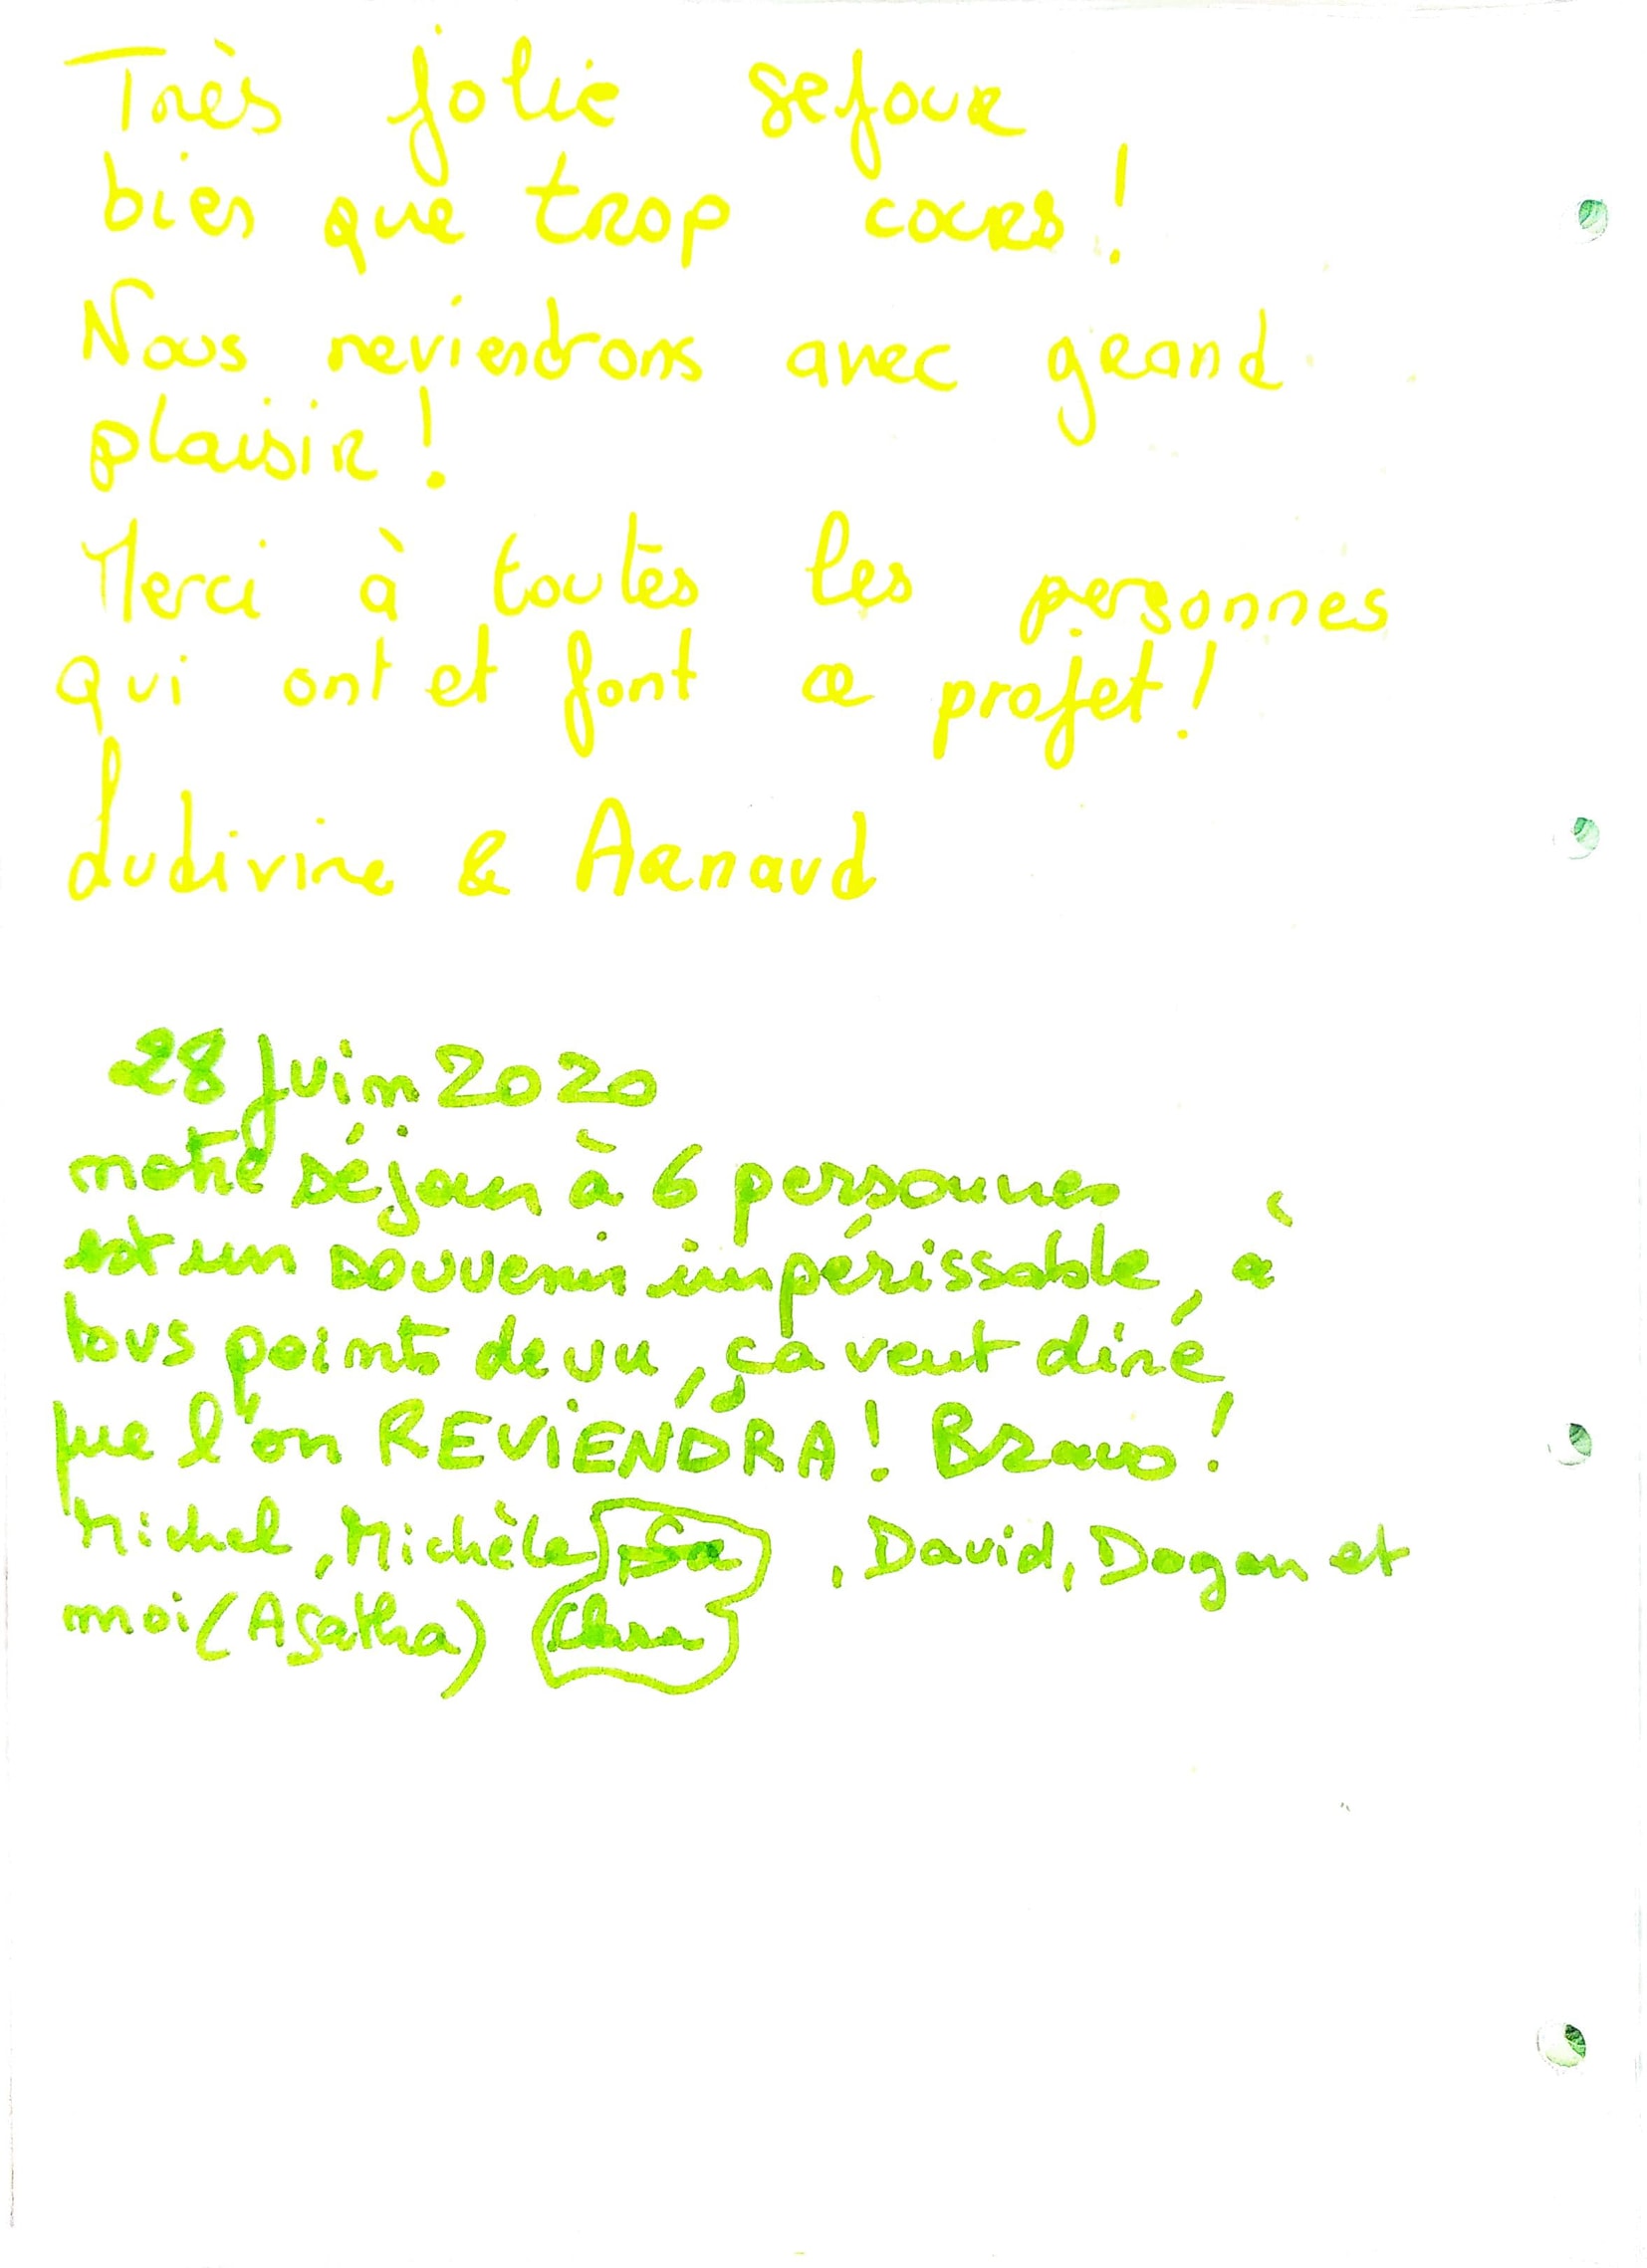 Très jolie sejour
bien que trop cours !
Nous reviendrons avec grand
plaisir !
Merci à toutes les personnes
qui ont et font ce projet !
Ludivine & Arnaud
28 Juin 2020
notre séjour à 6 personnes
est un souvenir impérissable, à
tous points de vu, ça veut dire
que l'on REVIENDRA ! Bravo !
Michel, Michèle, David, Dogan et
moi (Agatha) Clara